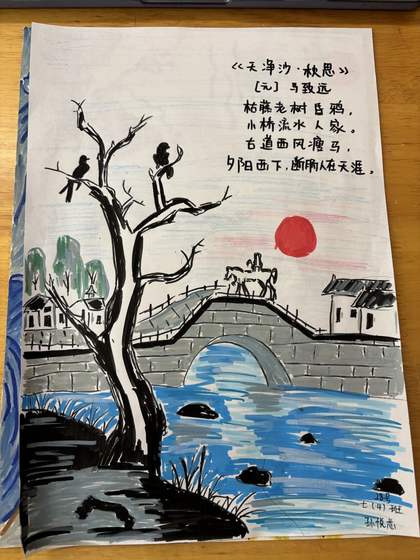 《天净沙·秋思》
[元] 马致远
枯藤老树昏鸦，
小桥流水人家。
古道西风瘦马，
夕阳西下，断肠人在天涯。
28号
七(4)班